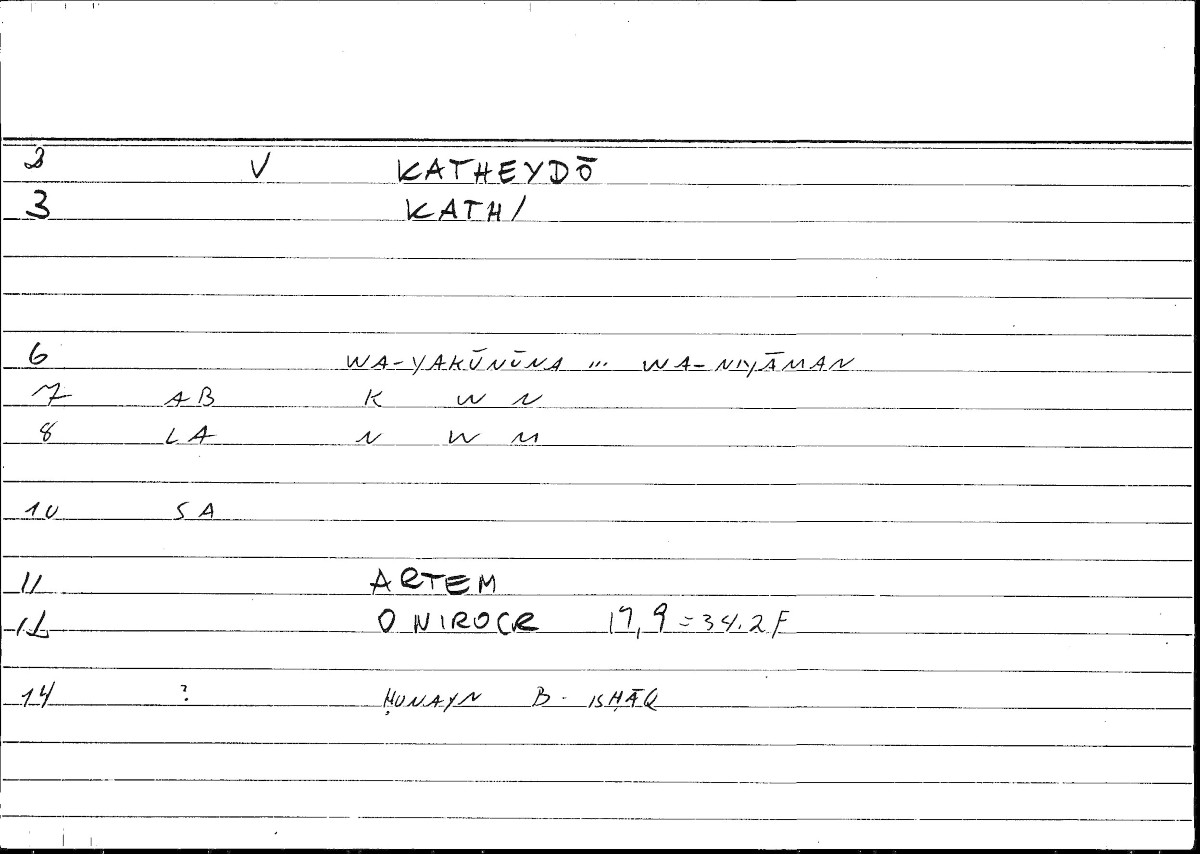 2 V KATHEYDŌ
3 KATH/
6 WA-YAKŪNŪNA ... WA-NIYĀMAN
7 AB K W N
8 LA N W M
10 SA
11 ARTEM
12 ONIROCR 17,9=34.2F
14 ? ḤUNAYN B. ISḤĀQ